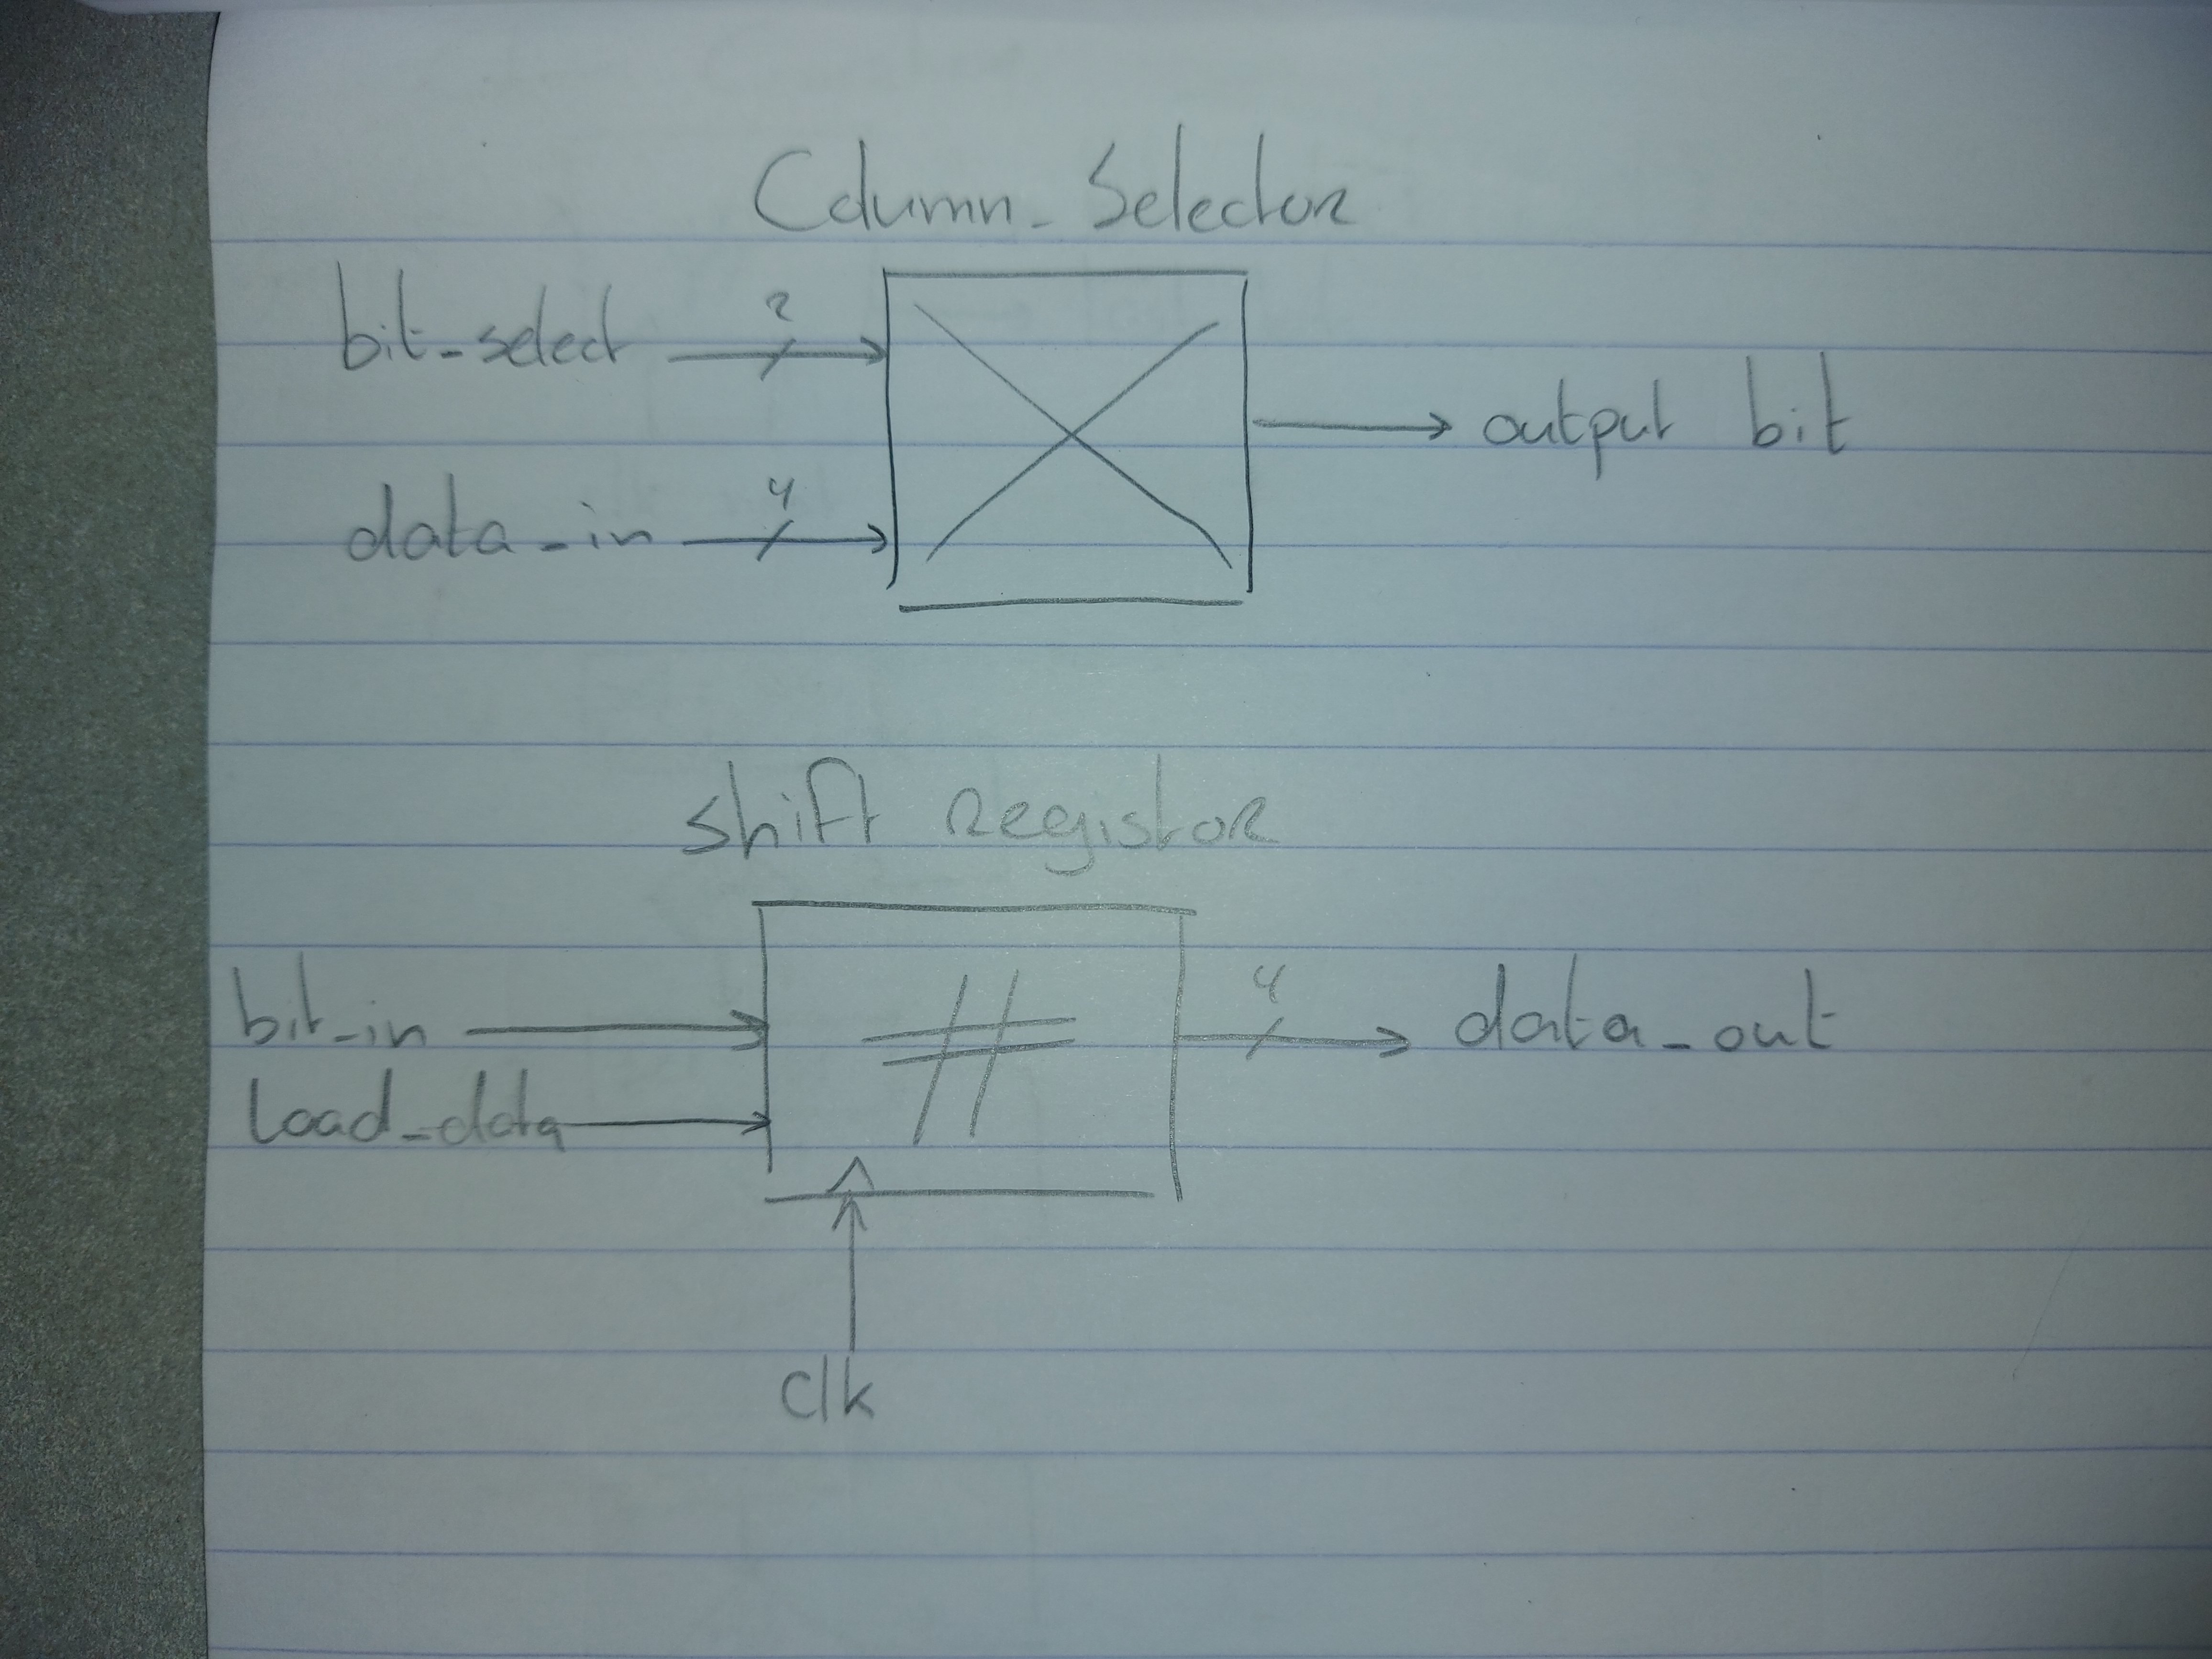 Column_Selector
bit_select 2
data_in 4 output bit
Shift Register
bit_in 4 data_out
load_data
clk